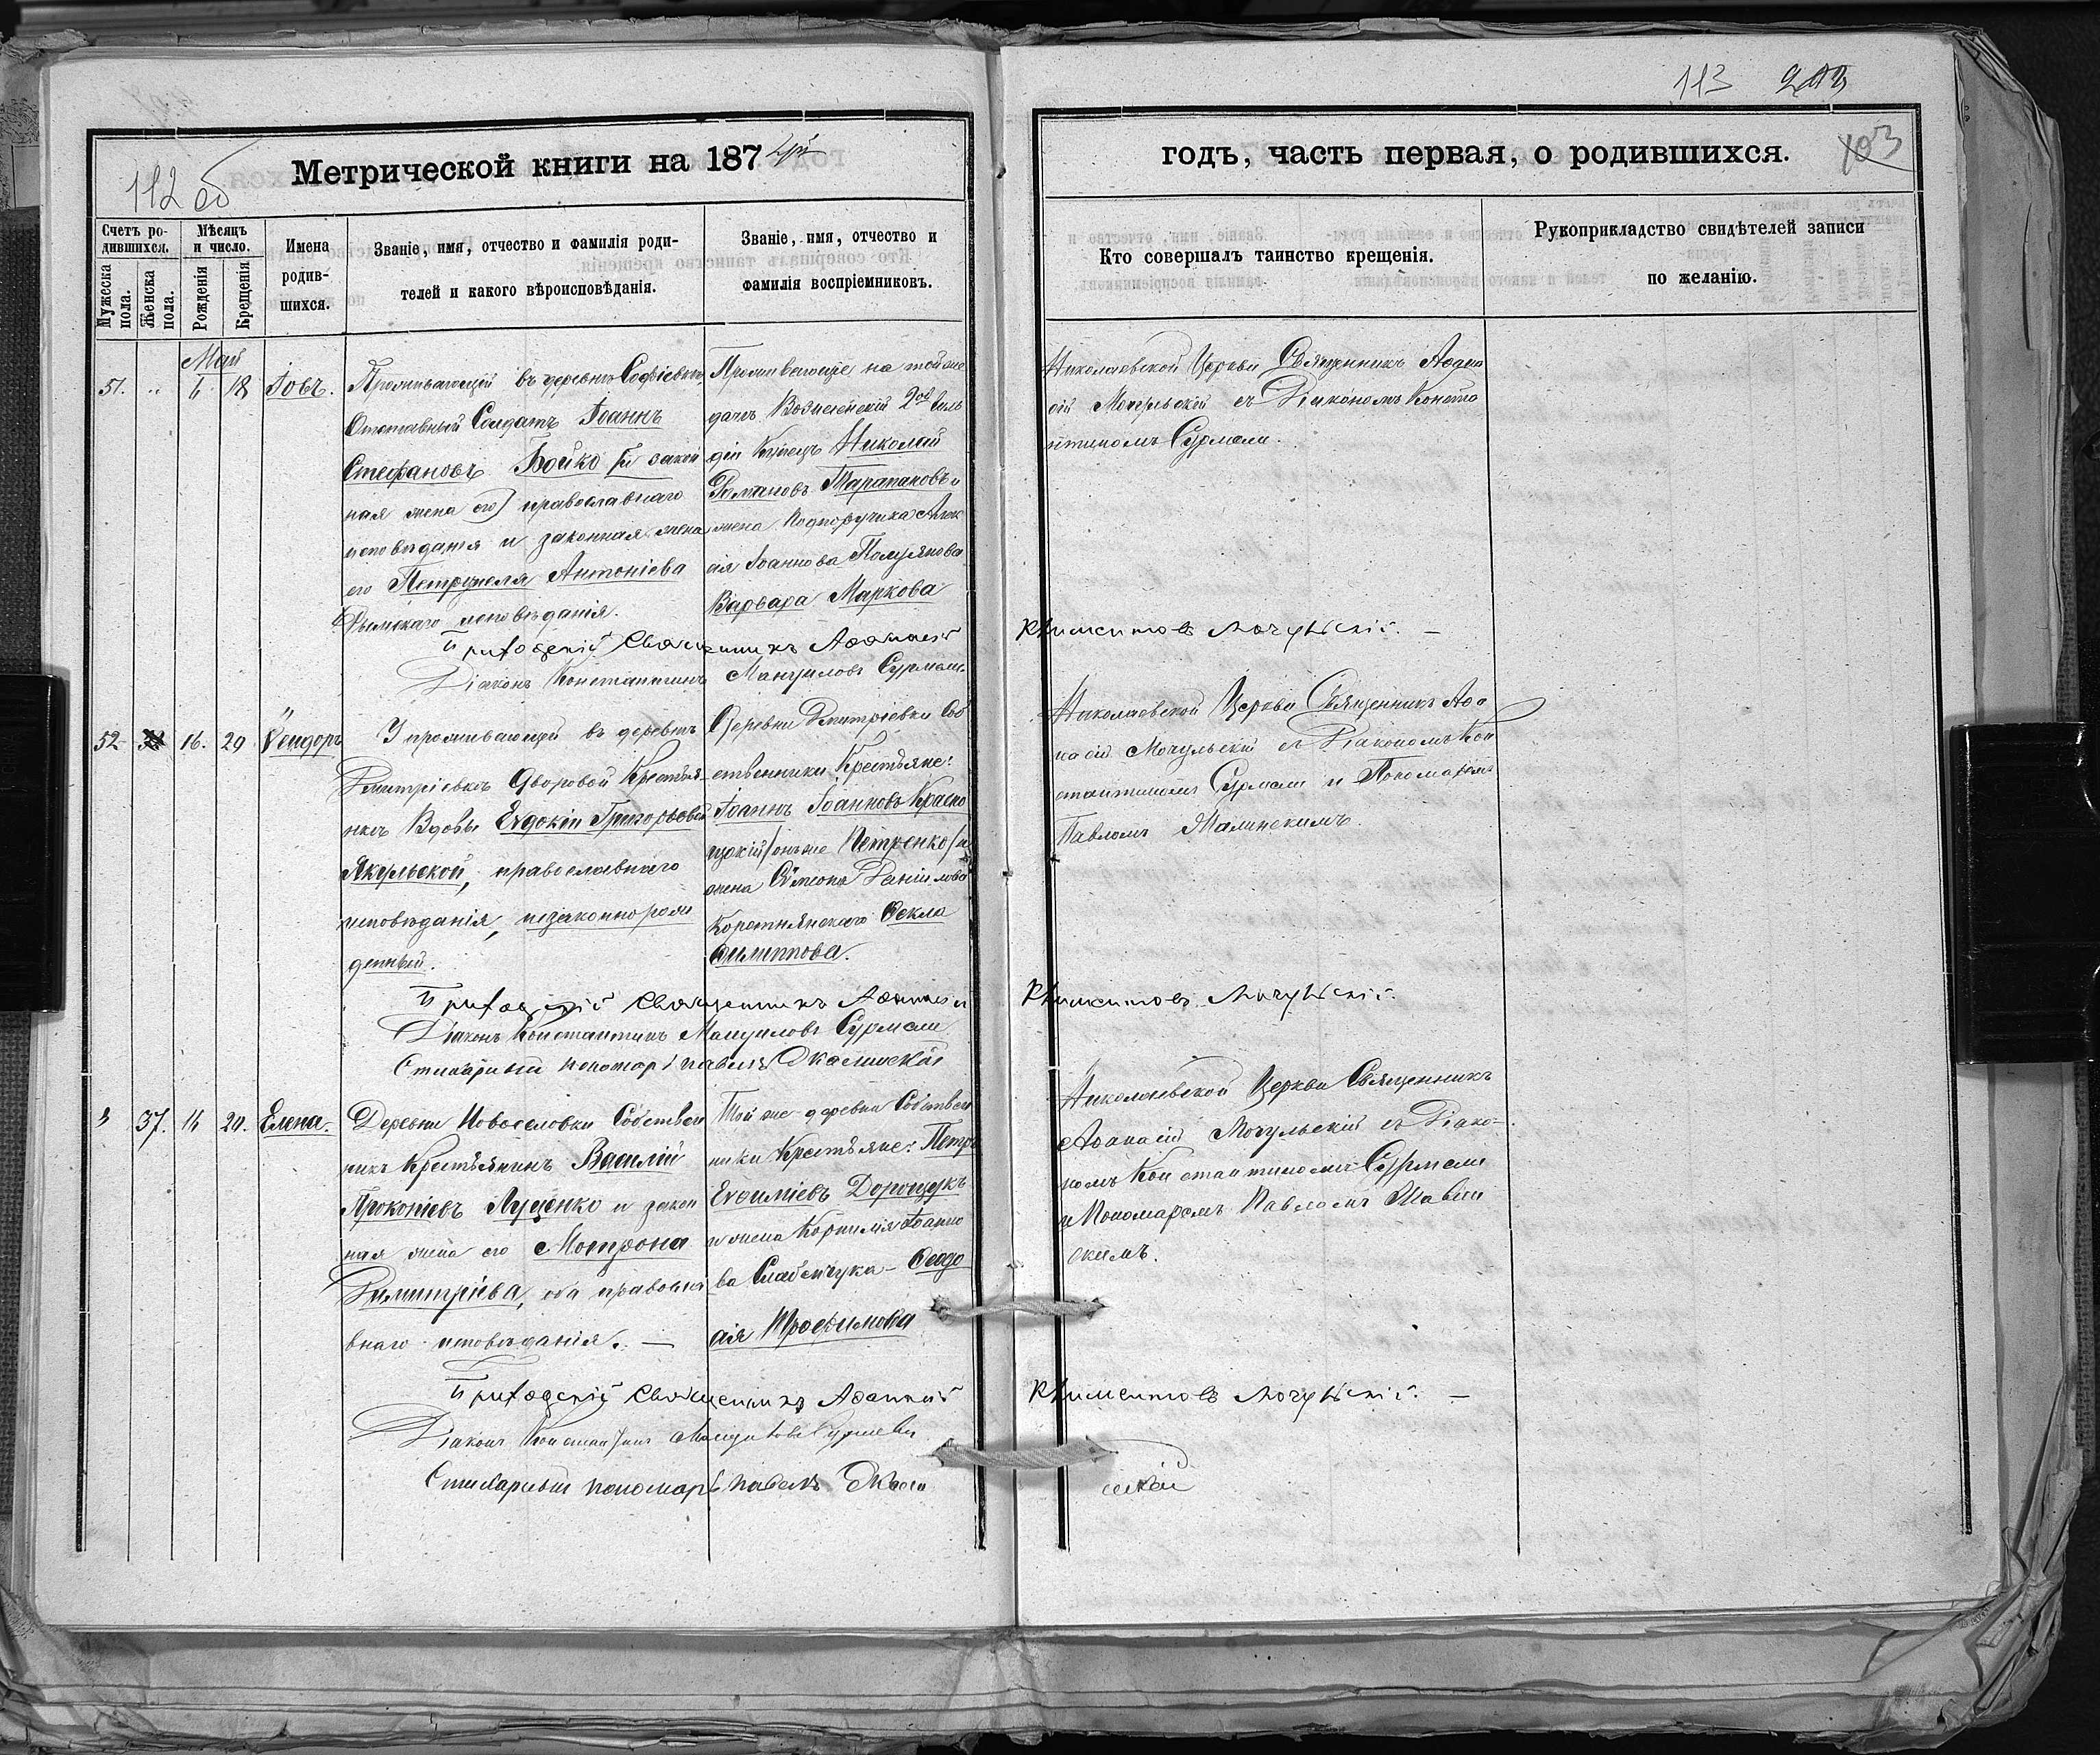 112 об
Метрической книги на 187
113
103
годъ, часть первая, о родившихся.
Счетъ ро-
дившихся.
Мужеска
пола.
Женска
пола.
Мѣсяцъ
и число.
Рожденія
Крещенія
Имена
родив-
шихся.
Званіе, имя, отчество и фамилія роди-
телей и какого вѣроисповѣданія.
Званіе, имя, отчество и
фамилія воспріемниковъ.
Кто совершалъ таинство крещенія.
Рукоприкладство свидѣтелей записи
по желанію.
Май
51. 18 Іовъ.
Проживающій въ деревнѣ Софіевкѣ
Отставный Солдатъ Іоаннъ
Стефановъ Бойко закон
ная жена его) православнаго
исповѣданія и законная жена
его Антоніева
Римскаго исповѣданія.
Проживающіе на той же
дачѣ Вознесенскій 2ой Гиль
діи Купецъ Николай
Романовъ Тарапановъ и
жена Подпоручика
Іоаннова
Варвара Маркова
Николаевской Церкви Священникъ Аѳана
сій Мочульскій съ Діакономъ Конста
нтиномъ Сурмели.
Приходскій Священникъ Аѳанасій
Климентовъ Мочульскій. —
Діаконъ Константинъ Мануиловъ Сурмели
52 16. 29
У проживающей въ деревнѣ
Дмитріевкѣ дворовой Крестья-
нкѣ Вдовы Евдокіи Григорьевой
Якульской, православнаго
исповѣданія, незаконнорож
денный.
Деревни Дмитріевки Соб
ственники Крестьяне:
Іоаннъ Іоанновъ Красно
Петренко/ и
жена Симеона Данилова
Ѳекла
Филиппова.
Николаевской Церкви Священникъ Аѳа
насій Мочульскій съ Діакономъ Кон
стантиномъ Сурмели и Пономаремъ
Павломъ
Приходскій Священникъ Аѳанасій
Климентовъ Мочульскій.
Діаконъ Константинъ Мануиловъ Сурмели
Стихарный пономарь Павелъ
37. 14 20. Елена.
Деревни Новоселовки Собствен
никъ Крестьянинъ Василій
Прокопіевъ Луценко и закон
ная жена его Мотрона
Димитріева, оба правосла
внаго исповѣданія. —
Той же деревни Собствен
ники Крестьяне: Петръ
Евѳиміевъ Дорощукъ
и жена Корнилія Іоанно
ва Слабенчука — Ѳеодо
сія Трофимова
Николаевской Церкви Священникъ
Аѳанасій Мочульскій съ Діако-
номъ Константиномъ Сурмели
и Пономаремъ Павломъ
скимъ.
Приходскій Священникъ Аѳанасій
Климентовъ Мочульскій. —
Діаконъ Константинъ Мануиловъ Сурмели
Стихарный пономарь Павелъ